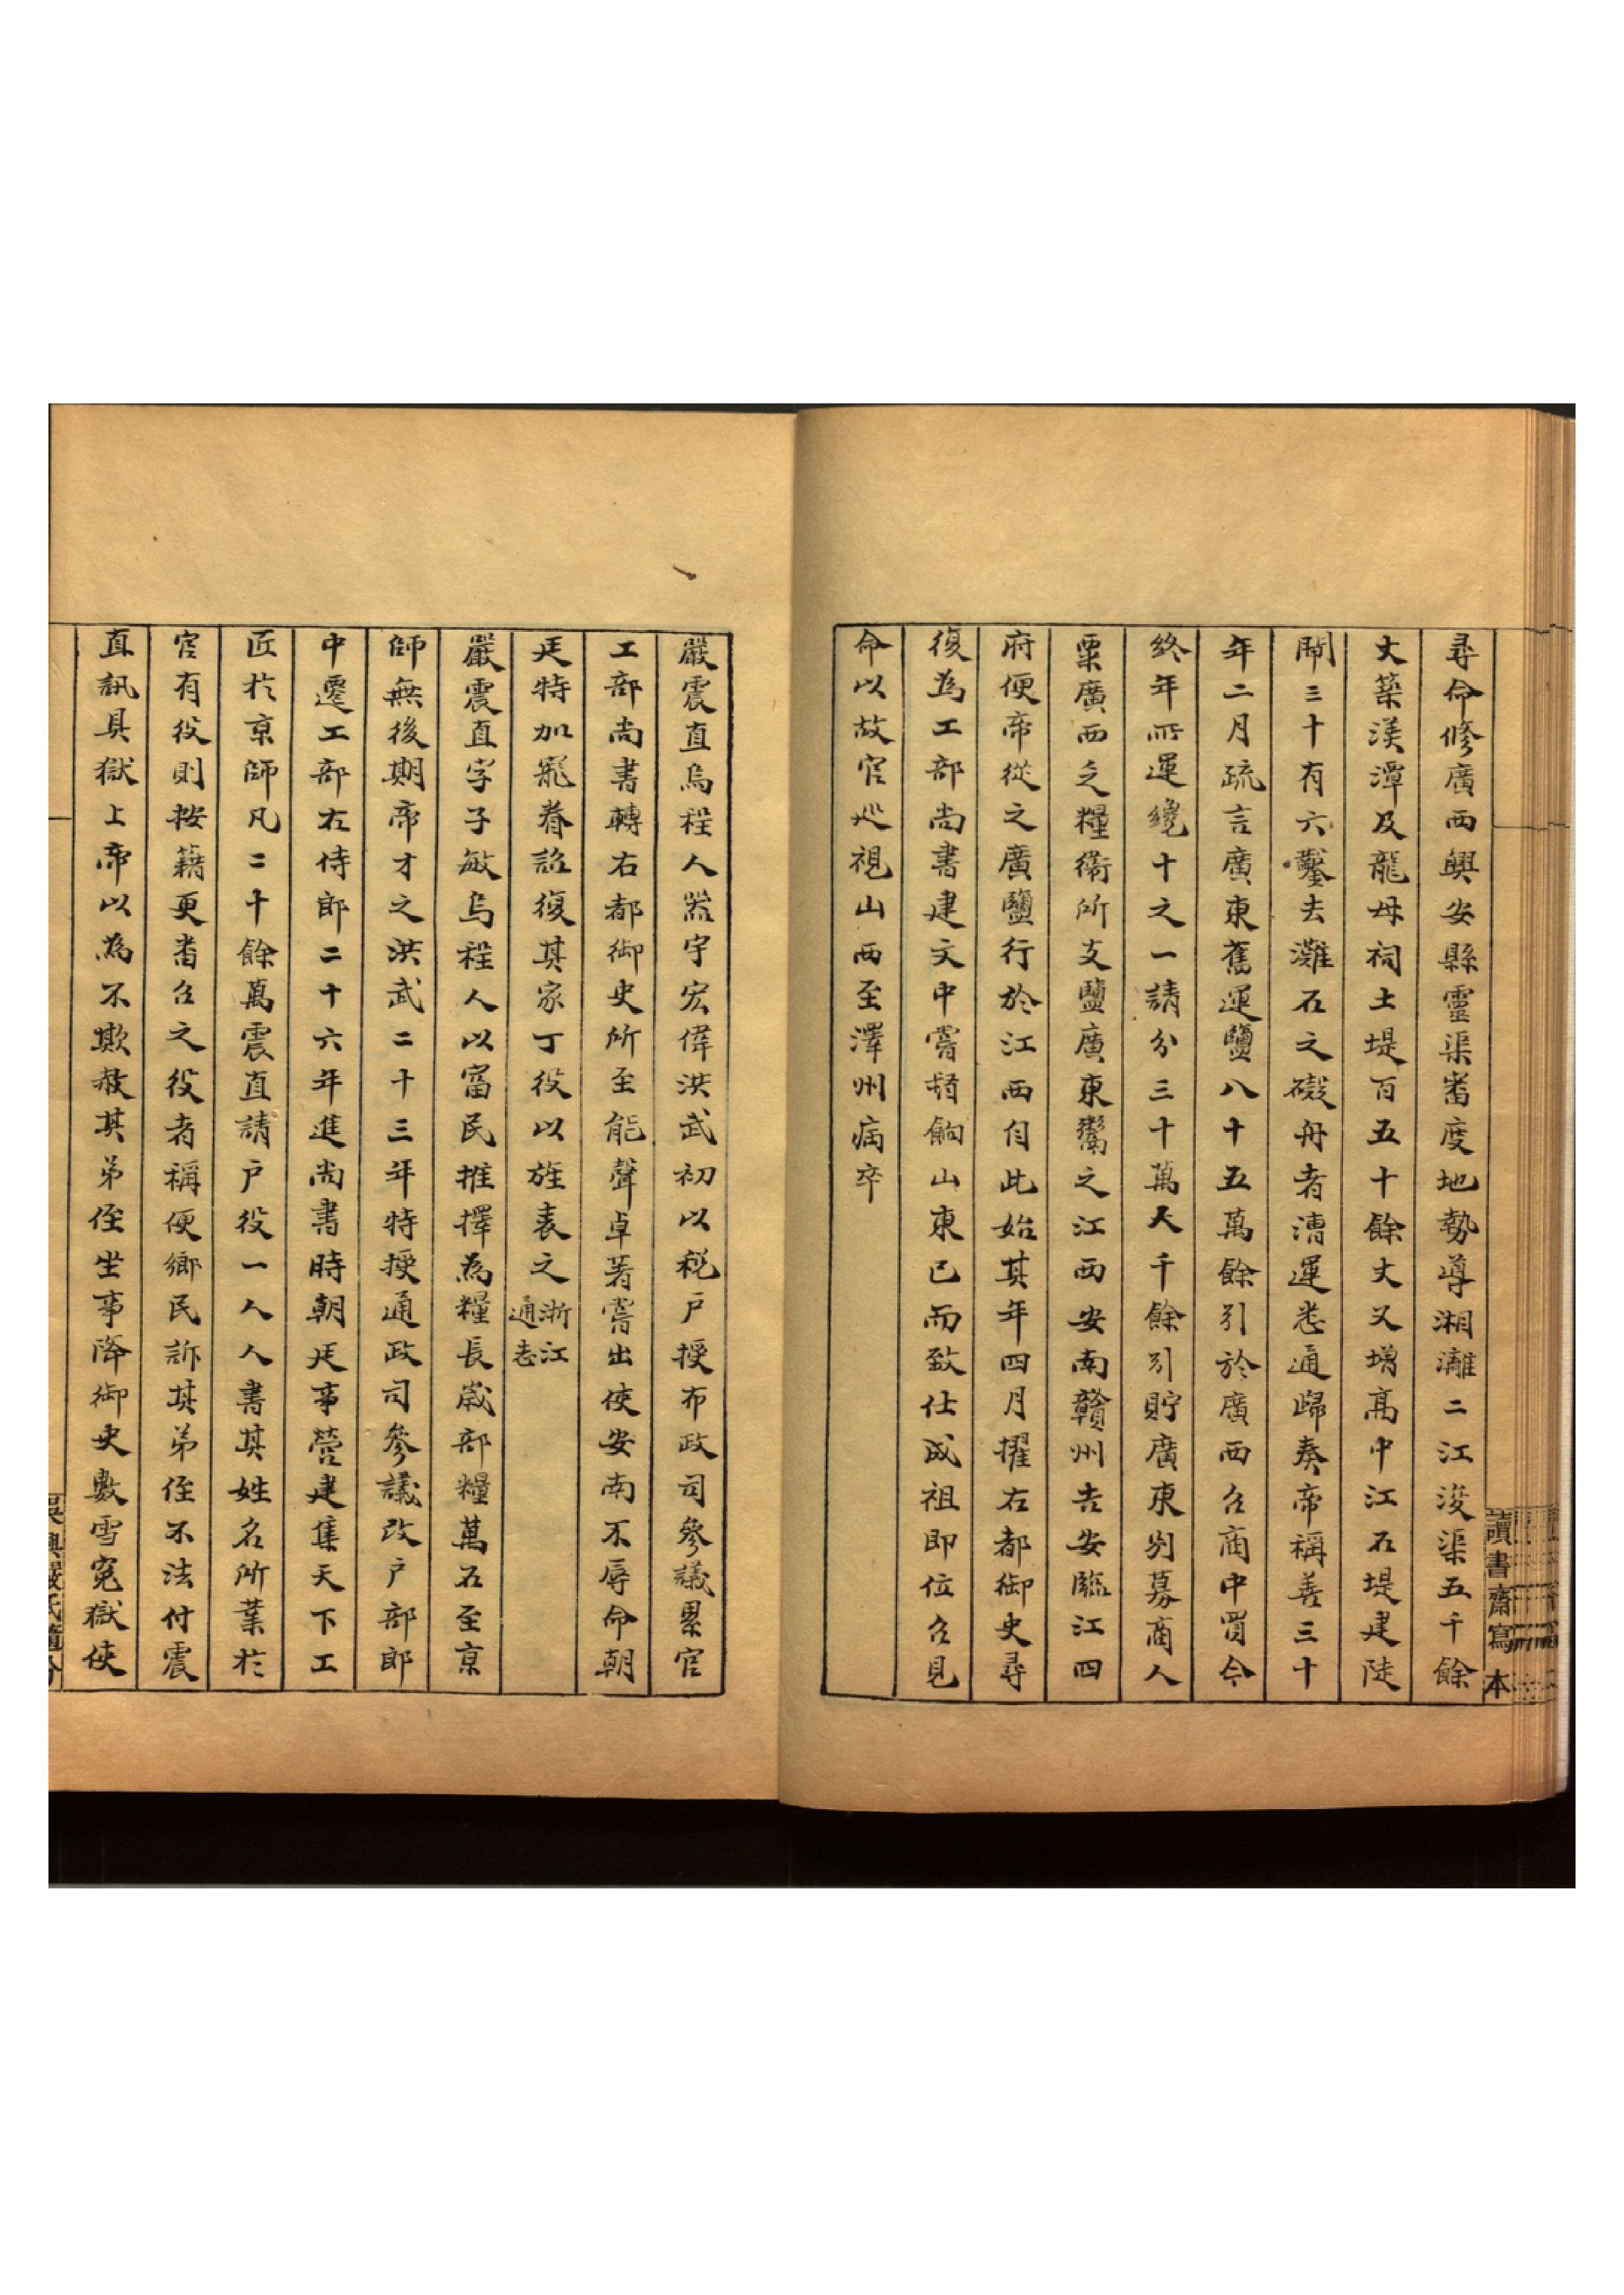 讀書齋寫本
尋命修廣西興安縣靈渠審度地勢導湘灕二江浚渠五千餘
丈築渼潭及龍母祠土堤百五十餘丈又增高中江石堤建陡
閘三十有六鑿去灘石之礙舟者漕運悉通歸奏帝稱善三十
年二月疏言廣東舊運鹽八十五萬餘引於廣西召商中買今
終年所運纔十之一請分三十萬八千餘引貯廣東别募商人
粟廣西之糧衞所支鹽廣東鬻之江西安南贛州吉安臨江四
府便帝從之廣鹽行於江西自此始其年四月擢右都御史尋
復為工部尚書建文中嘗督餉山東已而致仕成祖即位召見
命以故官巡視山西至澤州病卒
嚴震直烏程人器宇宏偉洪武初以稅戸授布政司參議累官
工部尚書轉右都御史所至能聲卓著嘗出使安南不辱命朝
廷特加寵眷詔復其家丁役以旌表之浙江通志
嚴震直字子敏烏程人以富民推擇為糧長歲部糧萬石至京
師無後期帝才之洪武二十三年特授通政司參議改戸部郎
中遷工部右侍郎二十六年進尚書時朝廷事營建集天下工
匠於京師凡二十餘萬震直請戸役一人人書其姓名所業於
官有役則按籍更畨召之役者稱便鄉民訴其弟侄不法付震
直訊具獄上帝以為不欺赦其弟侄坐事降御史數雪冤獄使
吳興嚴氏隨分